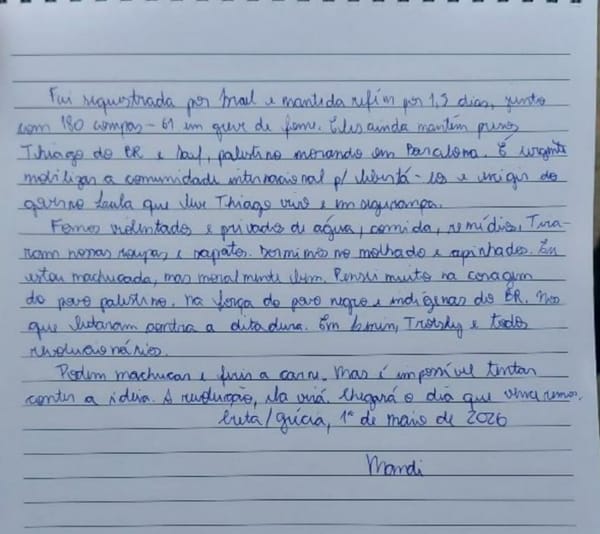 Fui sequestrada por Israel e mantida refém por 1,5 dias, junto
com 180 compas - 61 em greve de fome. Eles ainda mantém presos
Thiago do BR e Saif, palestino morando em Barcelona. É urgente
mobilizar a comunidade internacional p/ libertá-los e exigir do
governo Lula que tire Thiago vivo e em segurança.
Fomos violentados e privados de água, comida, remédios. Tira-
ram nossas roupas e sapatos. Dormimos no molhado e apinhados. Eu
estou machucada, mas moralmente bem. Pensei muito na coragem
do povo palestino. Na força do povo negro e indígenas do BR. Nos
que lutaram contra a ditadura. Em Lenin, Trotsky e todos
revolucionários.
Podem machucar e ferir a carne. Mas é impossível tentar
conter a ideia. A revolução, ela virá. Chegará o dia que venceremos.
Creta/Grécia, 1º de maio de 2026
Mandi